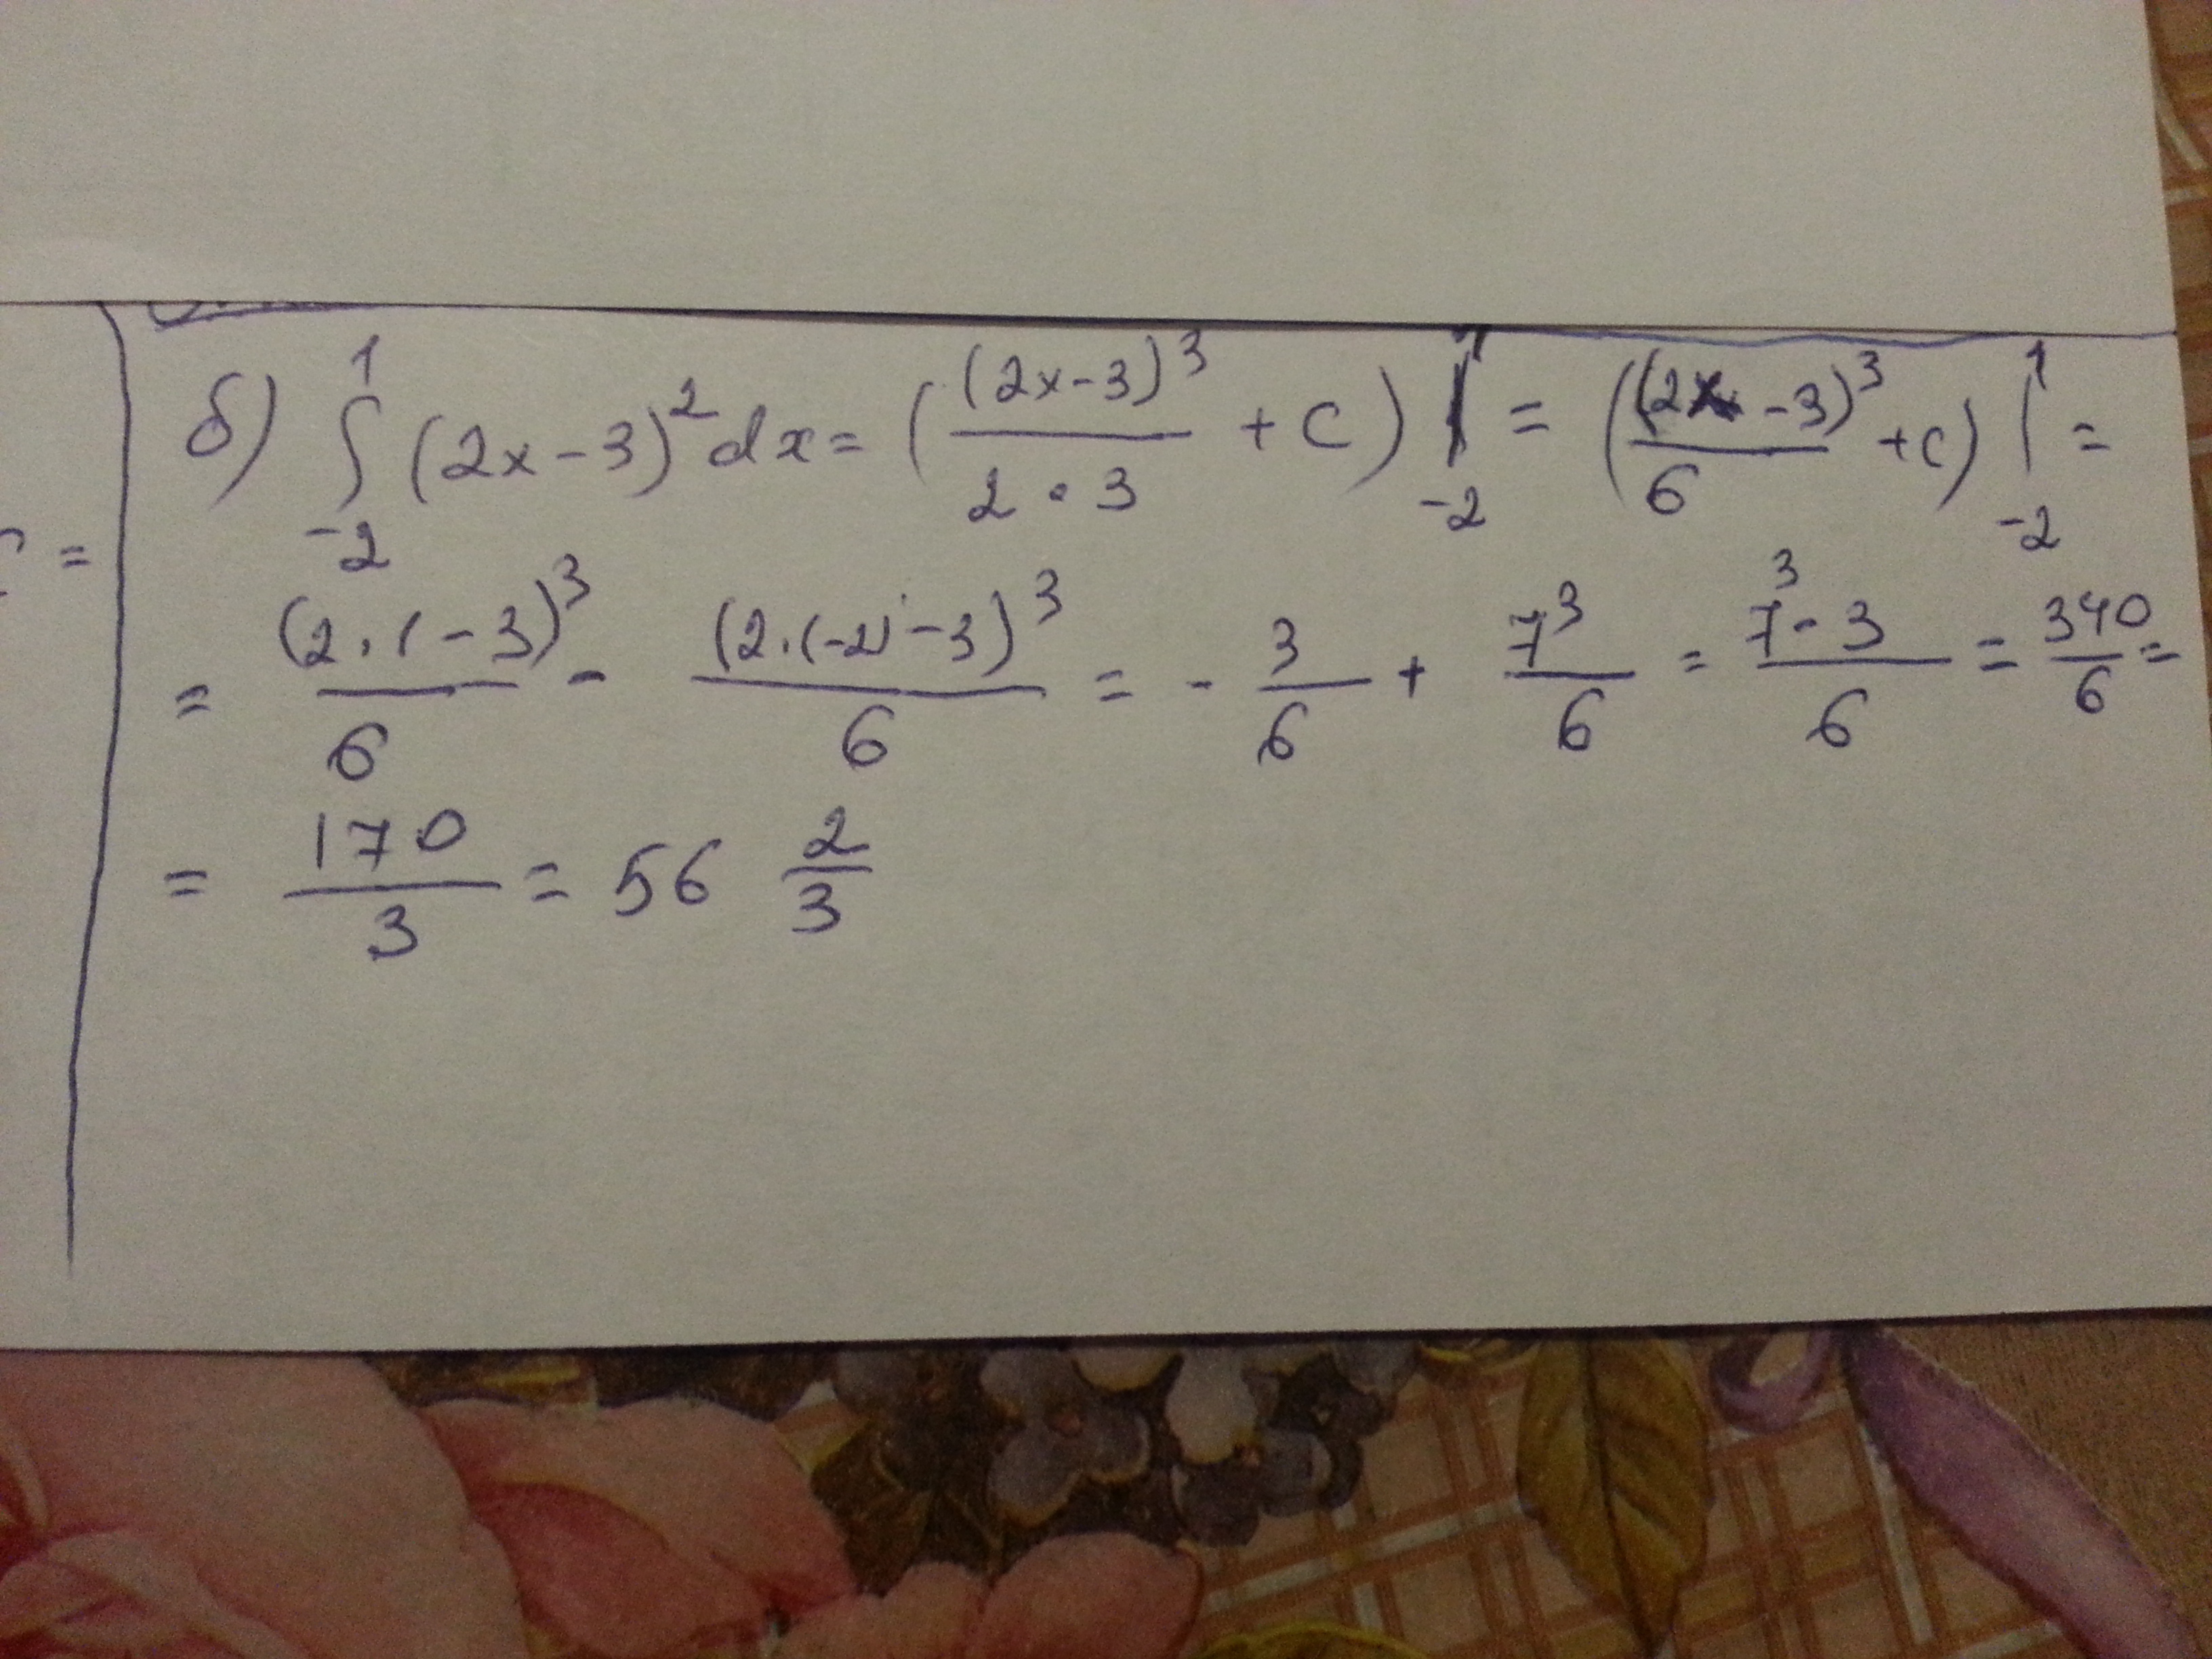 б) ∫₋₂¹ (2x-3)² dx = ((2x-3)³/(2·3) + C) |₋₂ = ((2x-3)³/6 + C) |₋₂¹ =
= (2·1-3)³/6 - (2·(-2)-3)³/6 = -3/6 + 7³/6 = (7³-3)/6 = 340/6 =
= 170/3 = 56 2/3